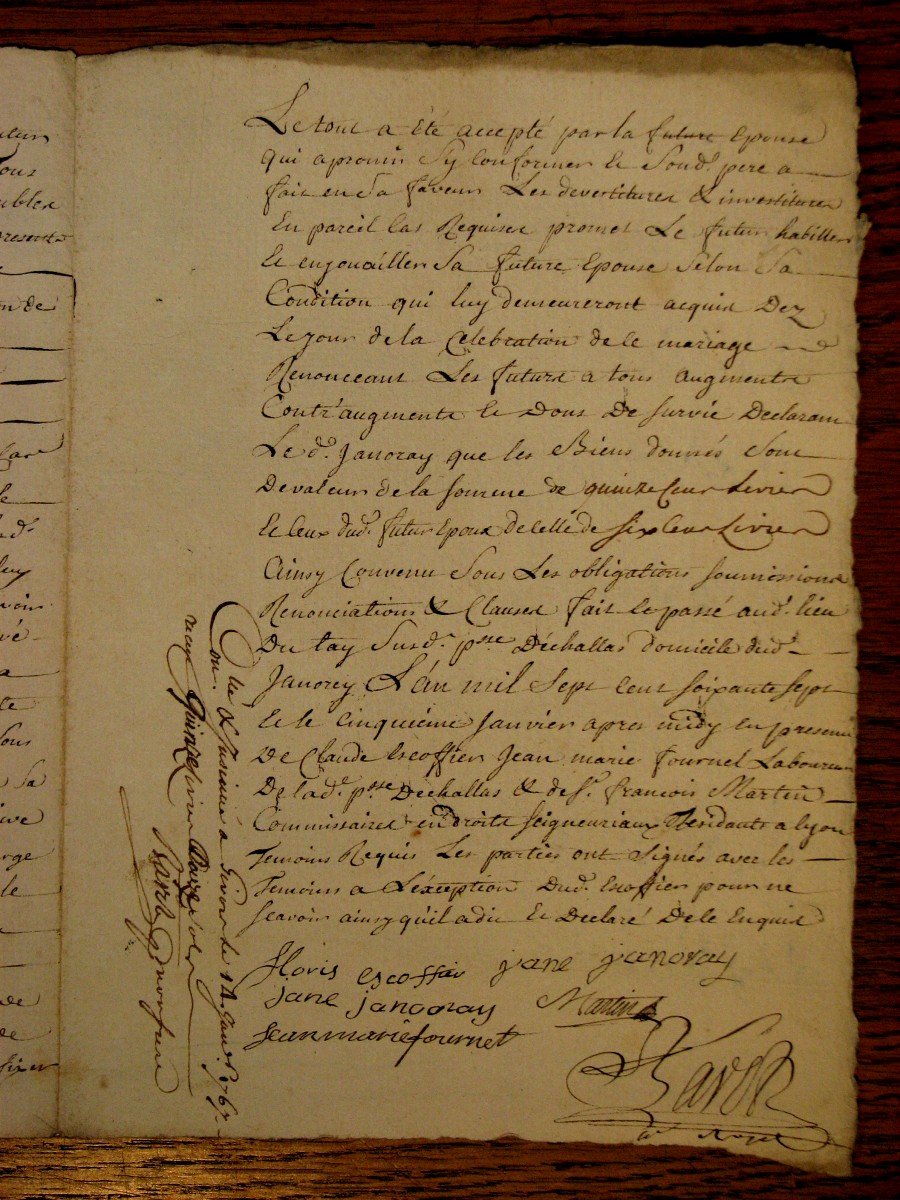 Le tout a été accepté par la future Epouse
qui a promis Sy Conformer Et Sond. pere a
fait en Sa faveur Les devestitures & investitures
En pareil Cas Requises promet Le futur habiller
Et enjouailler Sa future Epouse Selon Sa
Condition qui luy demeureront acquis Dez
Le jour de la Celebration de le mariage
Renonceant Les futurs a tous augments
Contr'augments et Dons De Survie Declarant
Le d. Janoray que les Biens donnés Sont
De valeur de la somme de quinze Cent Livres
Et Ceux dud. futur Epoux de Celle de Six Cent Livres
Ainsy Convenu Sous Les obligations soumissions
Renonciations & Clauses fait et passé aud. lieu
Du tay Susd. psse Déchallas domicile dud.
Janorey L'an mil Sept Cent soixante sept
Et le Cinquiéme Janvier apres midy En presence
De Claude Escoffier Jean marie fournel Laboureurs
De lad. psse Dechallas & de Sr. francois Martin
Commissaires en Droits Seigneuriaux Residants a lyon
Temoins Requis Les parties ont Signés avec les
Temoins a L'éxception Dud. Escoffier pour ne
scavoir ainsy qu'il a dit Et Declaré De ce Enquis
floris escoffier jane janoray
jane janooray Martin
Jean marie fournel
Con. lé & Insinué a Givors le 14 Janv. 1767
recu quinze Livres Douze sols
ubles
on de
Sous
Sa
arge
le
de
sixes